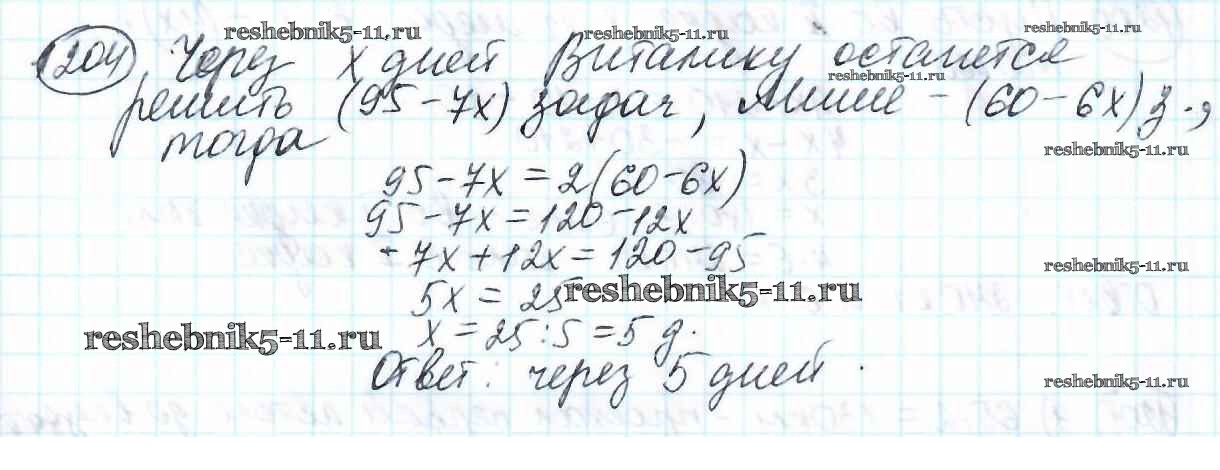 reshebnik5-11.ru reshebnik5-11.ru reshebnik5-11.ru
204 Через х дней Виталику останется
reshebnik5-11.ru
решить (95-7х) задач, Мише - (60-6х) з.,
тогда
reshebnik5-11.ru
95-7х=2(60-6х)
95-7х=120-12х
-7х+12х=120-95
reshebnik5-11.ru
5х=25 reshebnik5-11.ru
reshebnik5-11.ru х=25:5=5 д.
Ответ: через 5 дней.
reshebnik5-11.ru